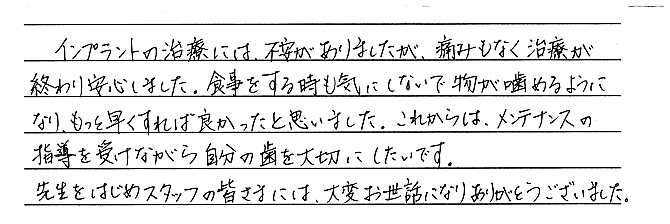 インプラントの治療には、不安がありましたが、痛みもなく治療が
終わり安心しました。食事をする時も気にしないで物が噛めるように
なり、もっと早くすれば良かったと思いました。これからは、メンテナンスの
指導を受けながら自分の歯を大切にしたいです。
先生をはじめスタッフの皆さまには、大変お世話になりありがとうございました。